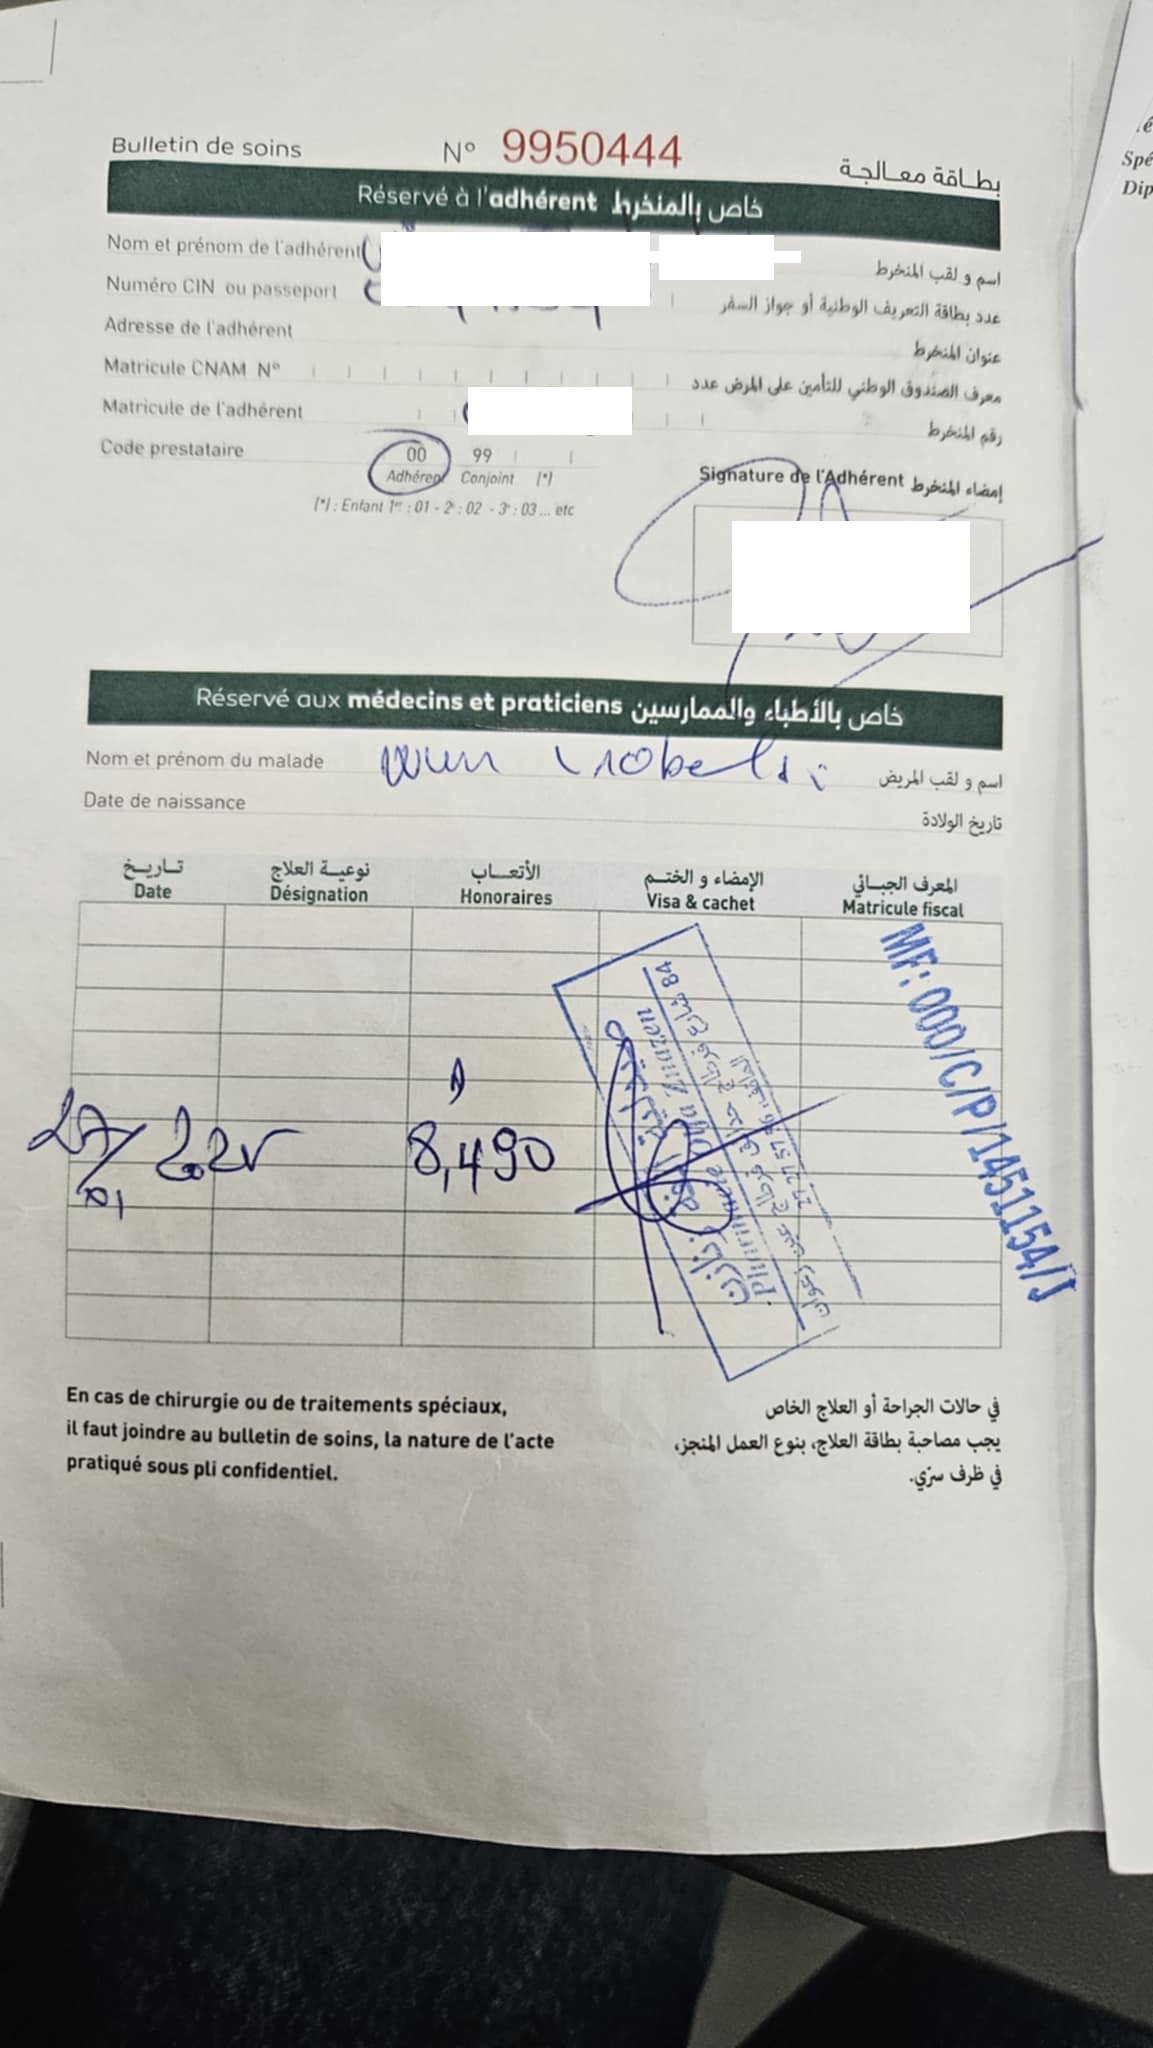 Bulletin de soins N° 9950444 بطاقة معالجة
Réservé à l'adhérent خاص بالمنخرط
Nom et prénom de l'adhérent اسم و لقب المنخرط
Numéro CIN ou passeport عدد بطاقة التعريف الوطنية أو جواز السفر
Adresse de l'adhérent عنوان المنخرط
Matricule CNAM N° معرف الصندوق الوطني للتأمين على المرض عدد
Matricule de l'adhérent رقم المنخرط
Code prestataire 00 99
Adhérent Conjoint (*)
(*) : Enfant 1er : 01 - 2e : 02 - 3e : 03 ... etc
Signature de l'Adhérent إمضاء المنخرط
Réservé aux médecins et praticiens خاص بالأطباء والممارسين
Nom et prénom du malade اسم و لقب المريض
Date de naissance تاريخ الولادة
تاريخ نوعية العلاج الأتعاب الإمضاء و الختم المعرف الجبائي
Date Désignation Honoraires Visa & cachet Matricule fiscal
MF: 000/C/P/1451154/J
27/01/2025 8,490
Pharmacie
En cas de chirurgie ou de traitements spéciaux,
il faut joindre au bulletin de soins, la nature de l'acte
pratiqué sous pli confidentiel.
في حالات الجراحة أو العلاج الخاص
يجب مصاحبة بطاقة العلاج، بنوع العمل المنجز،
في ظرف سرّي.
Spé
Dip